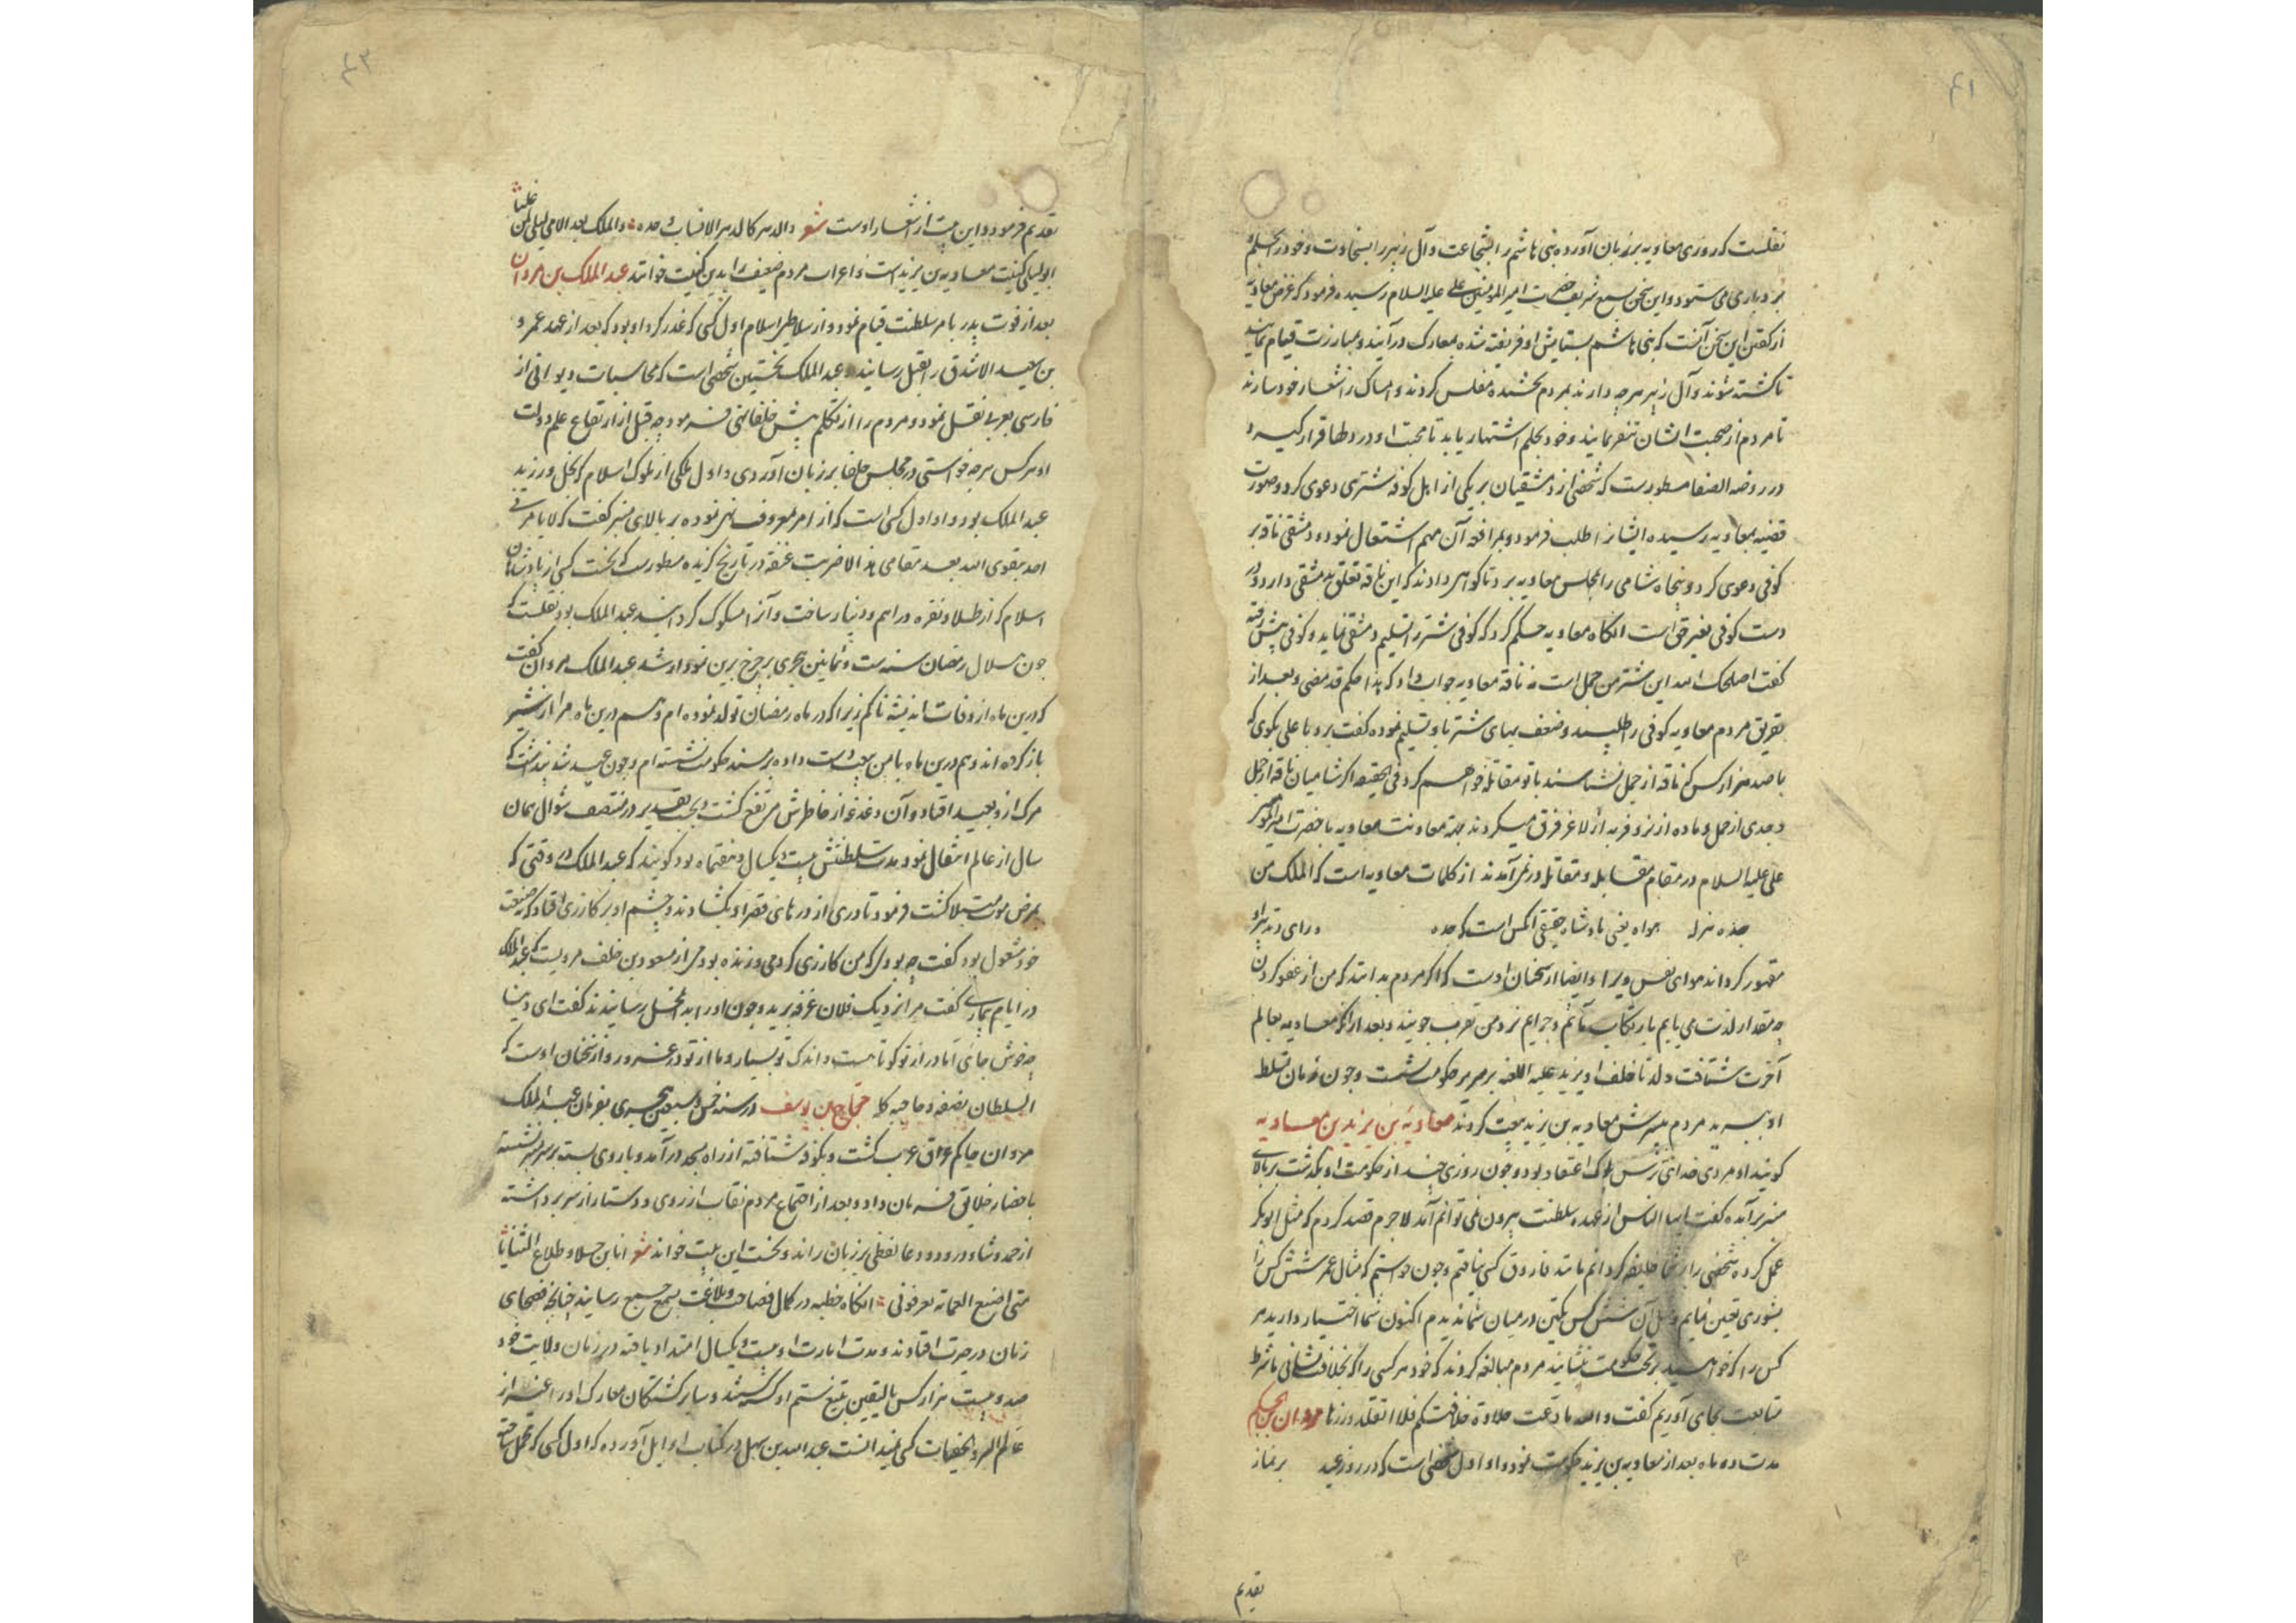 ۶۱
نقلست که روزی معاویه بر زبان آورد بنی هاشم را بشجاعت و آل زبیر را بسخاوت و خود را بحلم و
بردباری می ستود و این سخن بسمع شریف حضرت امیر المومنین علی علیه السلام رسیده فرمود که غرض معاویه
از گفتن این سخن آنست که بنی هاشم بستایش او فریفته شده بمعارک درآیند و بمبارزت قیام نمایند
تا کشته شوند و آل زبیر هرچه دارند بمردم بخشیده مفلس گردند و امساک را شعار خود سازند
تا مردم از صحبت ایشان تنفر نمایند و خود بحلم اشتهار یابد تا محبت او در دلها قرار گیرد و
در روضه الصفا مسطورست که شخصی از دمشقیان بر یکی از اهل کوفه شتری دعوی کرد و صورت
قضیه بمعاویه رسیده ایشانرا طلب فرمود و بمرافعه آن مهم اشتغال نمود و دمشقی ناقه بر
کوفی دعوی کرد و پنجاه شامی را بمجلس معاویه برد تا گواهی دادند که این ناقه تعلق بدمشقی دارد و در
دست کوفی بغیر حق است انکاه معاویه حکم کرد که کوفی شتر را تسلیم دمشقی نماید و کوفی پیش رفته
گفت اصلحک الله این شتر من جمل است نه ناقه معاویه جواب داد که هذا حکم قد مضی و بعد از
تفریق مردم معاویه کوفی را طلبیده و ضعف بهای شتر باو تسلیم نموده گفت برو با علی بگوی که
با صد هزار کس که ناقه از جمل نشناسند با تو مقاتله خواهم کرد فی الحقیقه اگر شامیان ناقه از جمل
و جدی از حمل و ماده از نر و فربه از لاغر فرق میکردند بجهة معاونت معاویه با حضرت امیر المومنین
علی علیه السلام در مقام مقابله و مقاتله در نمی آمدند از کلمات معاویه است که الملک من
جده هزله هواه یعنی پادشاه حقیقی آنکس است که جده ورای و تدبیر او
مقهور گرداند هوای نفس ویرا و ایضا از سخنان اوست که اگر مردم بدانند که من از عفو کردن
چه مقدار لذت می یابم بارتکاب مآثم و جرایم نزد من تقرب جویند و بعد از انکه معاویه بعالم
آخرت شتافت ولد ناخلف او یزید علیه اللعنه بر سریر حکومت نشست و چون زمان تسلط
او بسر رسید مردم بپسرش معاویه بن یزید بیعت کردند معاویه بن یزید بن معاویه
گویند او مردی خدای ترس نیکو اعتقاد بود و چون روزی چند از حکومت او بگذشت بر بالای
منبر برآمده گفت ایها الناس از عهده سلطنت بیرون نمی توانم آمد لاجرم قصد کردم که مثل ابو بکر
عمل کرده شخصی را بر شما خلیفه گردانم مانند فاروق کسی نیافتم و چون خواستم که مثال عمر شش کس را
بشوری تعیین نمایم مثل آن شش کس یکتن در میان شما ندیدم اکنون شما اختیار دارید هر
کس را که خواهید بر تخت حکومت نشانید مردم مبالغه کردند که خود هر کسی را که بخلافت نشانی ما شرط
متابعت بجای آوریم گفت والله ما ذقت حلاوة خلافتکم فلا اتقلد وزرها مروان بن الحکم
مدت ده ماه بعد از معاویه بن یزید حکومت نمود و او اول شخصی است که در روز عید بر نماز
تقدیم
۶۲
تقدیم فرمود و این بیت از اشعار اوست شعر والدهر کالدهر الا فیات جده والملک بعد ابی لیلی لمن غلبا
ابو لیلی کنیت معاویه بن یزید است و اعراب مردم ضعیف را بدین کنیت خوانند عبد الملک بن مروان
بعد از فوت پدر بامر سلطنت قیام نمود و از سلاطین اسلام اول کسی که غدر کرد او بود که بعد از عهد عمرو
بن سعید الاشدق را بقتل رسانید و عبد الملک نخستین شخصی است که محاسبات و دیوانی از
فارسی بعربی نقل نمود و مردم را از تکلم پیش خلفا نهی فرمود چه قبل از ارتفاع علم دولت
او هر کس هر چه خواستی در مجلس خلفا بر زبان آوردی و اول ملکی از ملوک اسلام که بخل ورزید
عبد الملک بود و او اول کسی است که از امر معروف نهی نموده بر بالای منبر گفت که لا یامرنی
احد بتقوی الله بعد مقامی هذا الا ضربت عنقه در تاریخ گزیده مسطورست که نخست کسی از پادشاهان
اسلام که از طلا و نقره دراهم و دینار ساخت و آنرا مسکوک گردانید عبد الملک بود نقلست که
چون هلال رمضان سنه ست و ثمانین هجری بر چرخ برین نمودار شد عبد الملک مروان گفت
که درین ماه از وفات اندیشه ناکم زیرا که در ماه رمضان تولد نموده ام و هم درین ماه مرا از شیر
باز کرده اند و هم درین ماه با من بیعت دست داده بر مسند حکومت نشسته ام و چون عید شد پنداشت که
مرگ از و بعید افتاد و آن دغدغه از خاطرش مرتفع گشت و بحسب تقدیر در منتصف شوال همان
سال از عالم انتقال نمود مدت سلطنتش بیست و یکسال و هفتماه بود گویند که عبد الملک در وقتی که
بمرض موت مبتلا گشت فرمود تا دری از درهای قصر او بگشادند و چشم او بر گازری افتاد که بصنعت
خود مشغول بود گفت چه بودی که من گازری کردمی و زنده بودمی از مسعود بن خلف مرویست که عبد الملک
در ایام بیماری گفت مرا نزدیک فلان غرفه برید و چون او را بدان محل رسانیدند گفت ای دنیا
چه خوش جائی اما دراز تو کوتاهست و اندک تو بسیار و ما از تو در غرور و از سخنان اوست که
السلطان بصفه و صاحبه کله حجاج بن یوسف در سنه خمس و سبعین هجری بفرمان عبد الملک
مروان حاکم عراق عرب گشت و بکوفه شتافته از راه بمسجد درآمد و با روی بسته بر سر منبر نشسته
باحضار خلایق فرمان داد و بعد از اجتماع مردم نقاب از روی و دستار از سر برداشته
از حمد و ثنا و درود و دعا لفظی بر زبان راند و نخست این بیت خواند شعر انا ابن جلا و طلاع الثنایا
متی اضع العمامه تعرفونی انکاه خطبه در کمال فصاحت و بلاغت بسمع جمیع رسانید چنانچه فصحای
زمان در حیرت افتادند و مدت امارت او بیست و یکسال امتداد یافته در زمان ولایت خود
صد و بیست هزار کس بالیقین بتیغ ستم او کشته شدند و سایر کشتگان معارک او را غیر از
عالم السر و الخفیات کسی نمیدانست عبد الله بن سهل در کتاب اوایل آورده که اول کسی که محمل ساخته